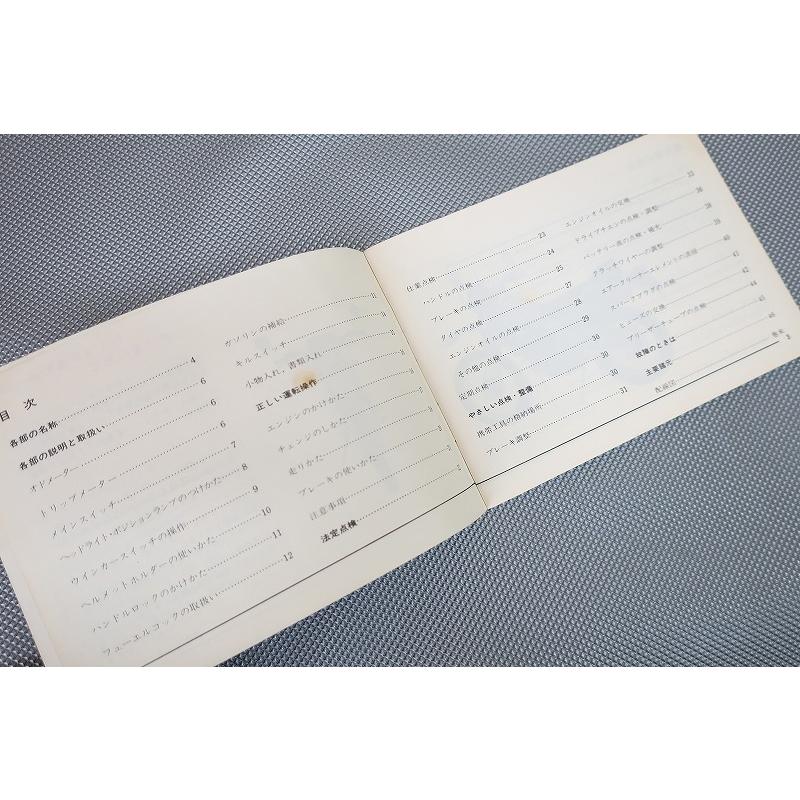 目 次
各部の名称 4
各部の説明と取扱い 6
オドメーター 6
トリップメーター 6
メインスイッチ 7
ヘッドライト・ポジションランプのつけかた 8
ウインカースイッチの操作 9
ヘルメットホルダーの使いかた 10
ハンドルロックのかけかた 11
フューエルコックの取扱い 12
ガソリンの補給
キルスイッチ
小物入れ、書類入れ
正しい運転操作
エンジンのかけかた
チェンジのしかた
走りかた
ブレーキの使いかた
注意事項
法定点検
仕業点検 23
ハンドルの点検 24
ブレーキの点検 25
タイヤの点検 27
エンジンオイルの点検 28
その他の点検 29
定期点検 30
やさしい点検・整備 30
携帯工具の格納場所 30
ブレーキ調整 31
エンジンオイルの交換
ドライブチェンの点検・調整 36
バッテリー液の点検・補充 38
クラッチワイヤーの調整 39
エアークリーナーエレメントの清掃 40
スパークプラグの点検
ヒューズの交換
ブリーザーチューブの点検
故障のときは
主要諸元 46
配線図 巻末
3